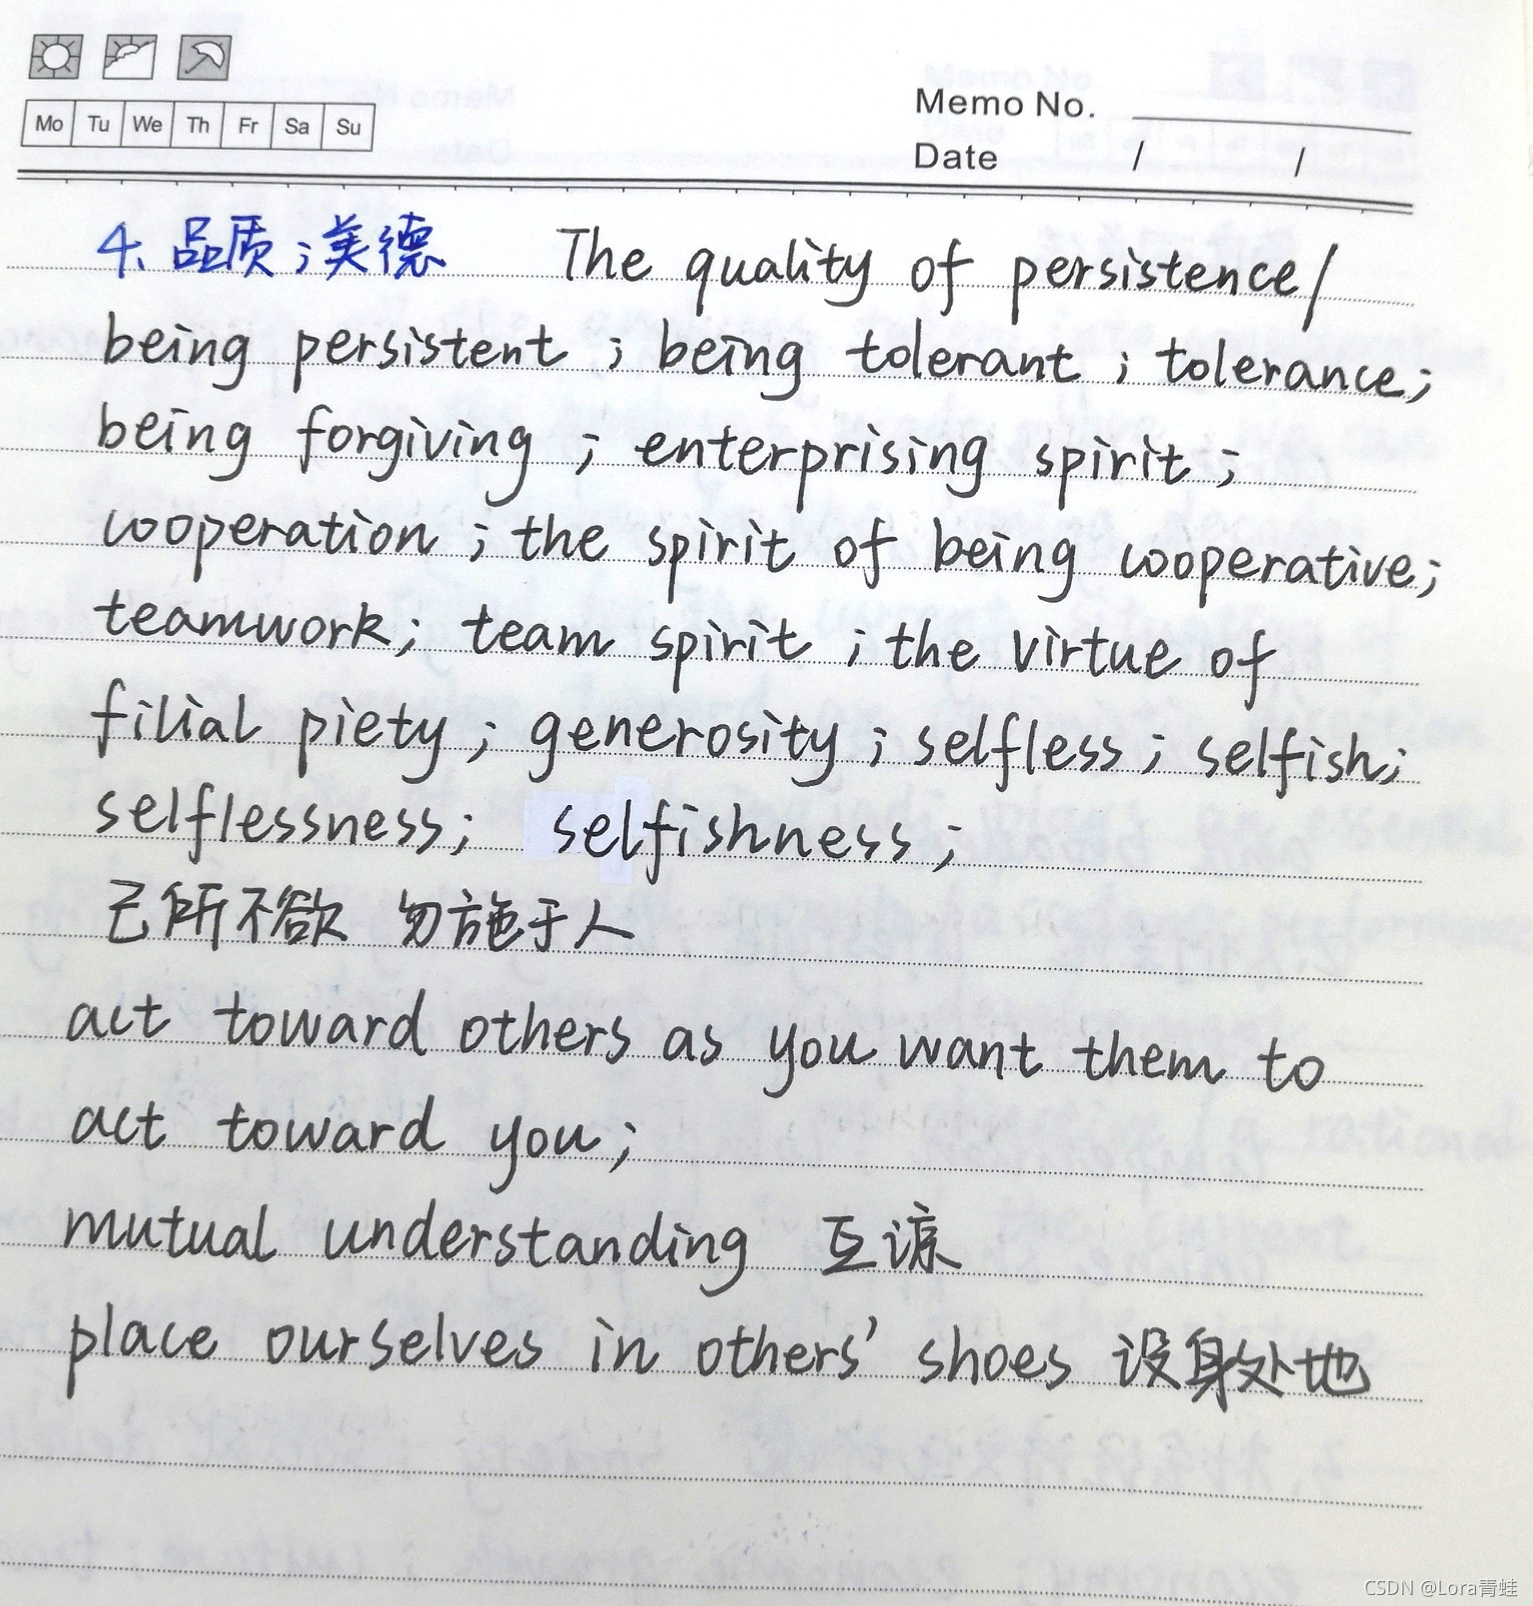 Mo Tu We Th Fr Sa Su
Memo No.
Date / /
4、品质；美德 The quality of persistence/
being persistent ; being tolerant ; tolerance;
being forgiving ; enterprising spirit ;
cooperation ; the spirit of being cooperative;
teamwork; team spirit ; the virtue of
filial piety ; generosity ; selfless ; selfish;
selflessness; selfishness ;
己所不欲 勿施于人
act toward others as you want them to
act toward you;
mutual understanding 互谅
place ourselves in others' shoes 设身处地
CSDN @Lora青蛙